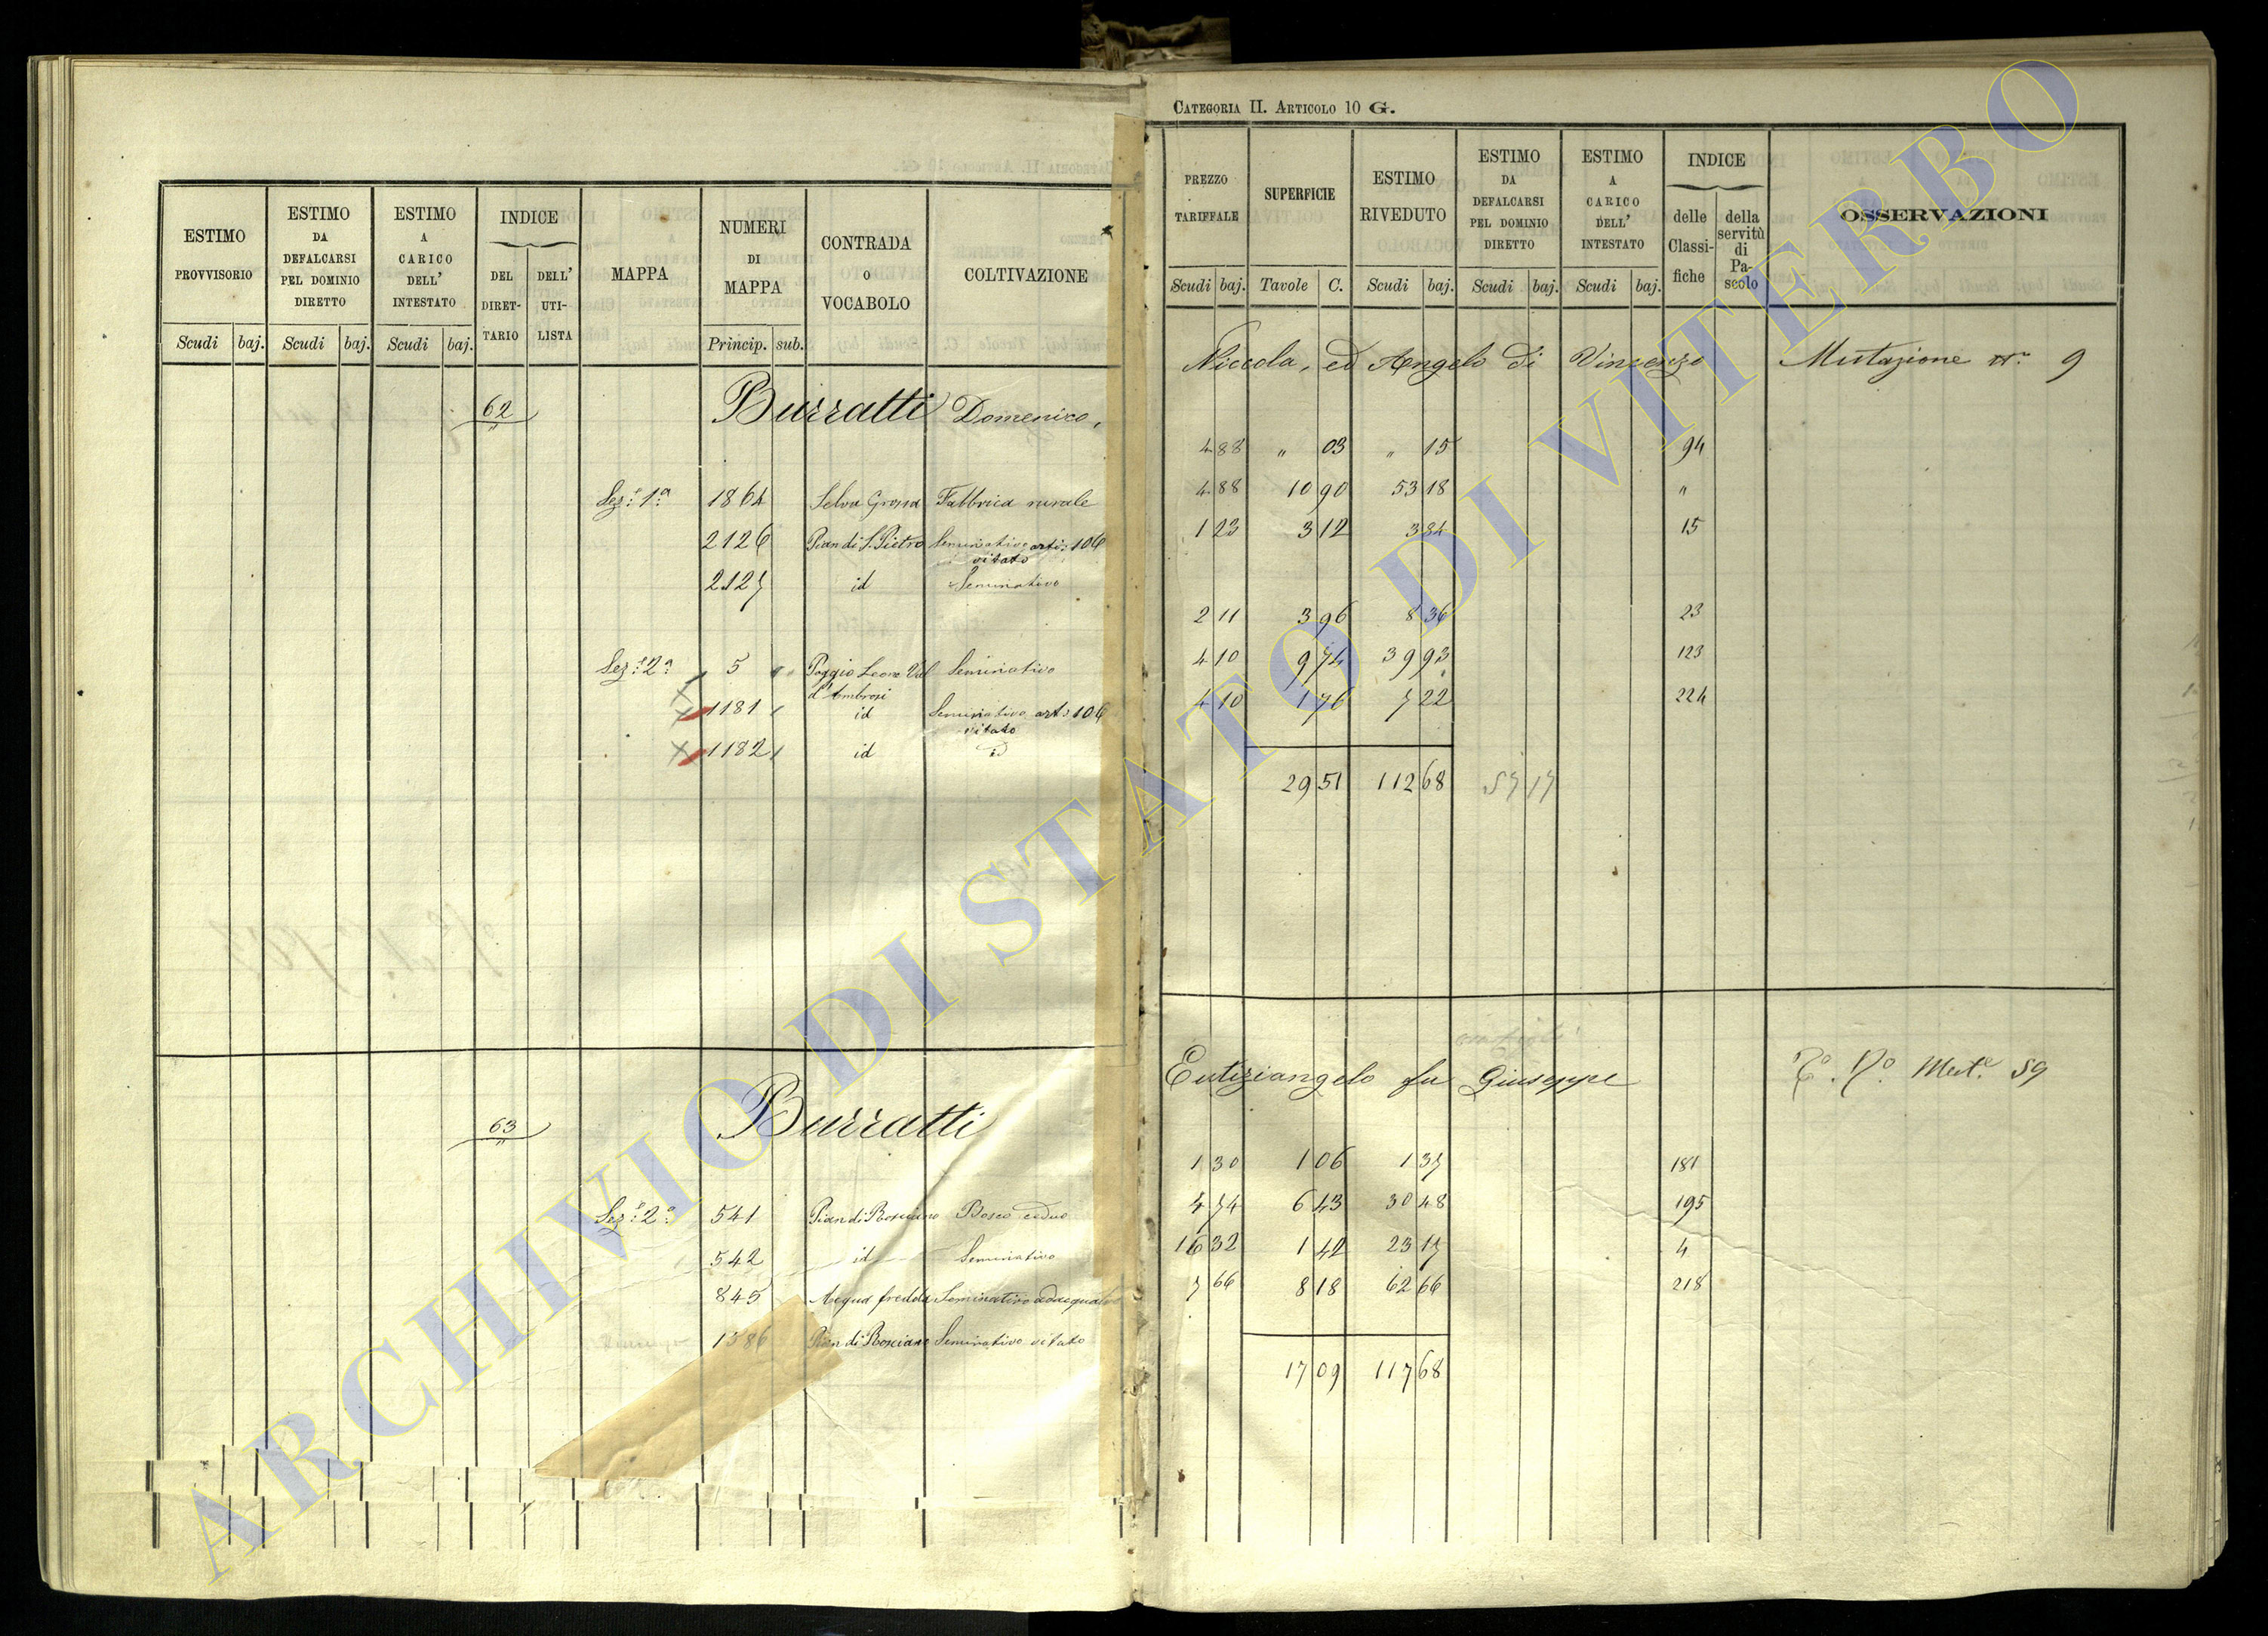 ESTIMO PROVVISORIO
Scudi baj.
ESTIMO DA DEFALCARSI PEL DOMINIO DIRETTO
Scudi baj.
ESTIMO A CARICO DELL' INTESTATO
Scudi baj.
INDICE
DEL DIRETTARIO
DELL' UTILISTA
MAPPA
NUMERI DI MAPPA
Princip. sub.
CONTRADA O VOCABOLO
COLTIVAZIONE
62 Burratti Domenico,
Sez.e 1.a 1864 Selva Grossa Fabbrica rurale
2126 Pian di S. Pietro Seminativo art.: 106
vitato
2127 id Seminativo
Sez.e 2.a 5 Poggio Leone Val Seminativo
d'Ambrosi
1181 id Seminativo art: 106
vitato
1182 id id
63 Burratti
Sez.e 2.a 541 Pian di Rosciano Bosco ceduo
542 id Seminativo
845 Acqua fredda Seminativo adacquativo
1386 Pian di Rosciano Seminativo vitato
CATEGORIA II. ARTICOLO 10 G.
PREZZO TARIFFALE
Scudi baj.
SUPERFICIE
Tavole C.
ESTIMO RIVEDUTO
Scudi baj.
ESTIMO DA DEFALCARSI PEL DOMINIO DIRETTO
Scudi baj.
ESTIMO A CARICO DELL' INTESTATO
Scudi baj.
INDICE
delle Classifiche
della servitù di Pascolo
OSSERVAZIONI
Niccola, ed Angelo di Vincenzo Mutazione n.o 9
4 88 " 03 " 15 94
4 88 10 90 53 18 "
1 23 3 12 3 84 15
2 11 3 96 8 36 23
4 10 9 74 39 93 123
4 10 1 76 7 22 224
29 51 112 68 57 17
Eutiziangelo fu Giuseppe Mut.e 59
1 30 1 06 1 37 181
4 74 6 43 30 48 195
16 32 1 42 23 17 4
7 66 8 18 62 66 218
17 09 117 68
ARCHIVIO DI STATO DI VITERBO